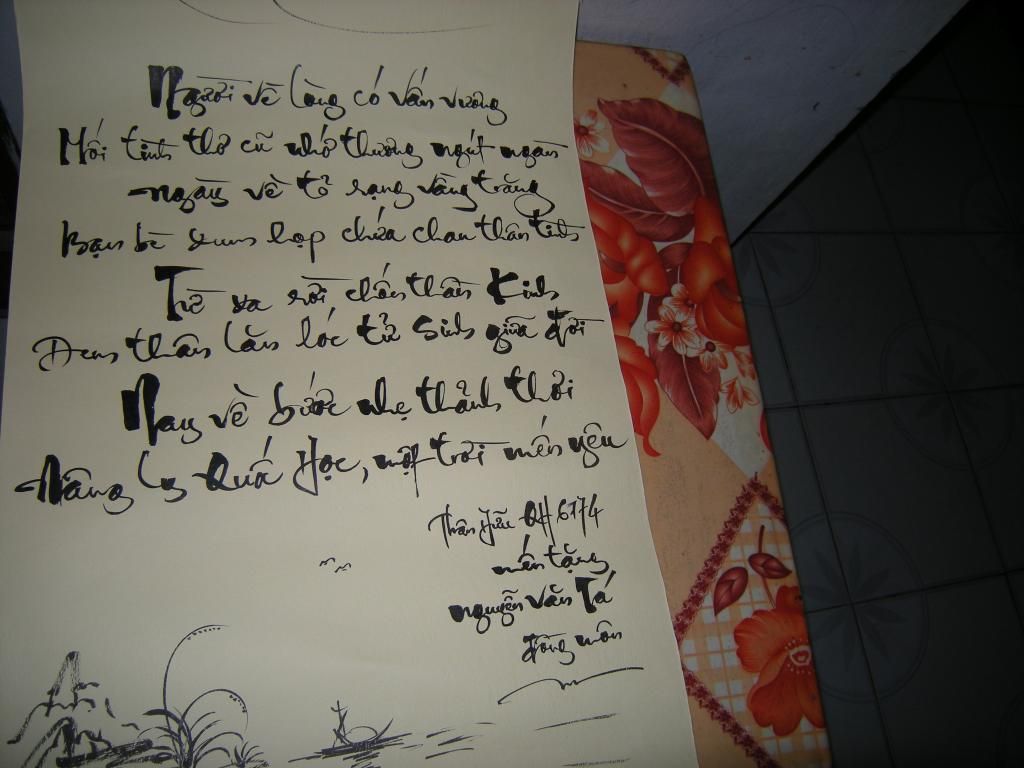 Người về lòng có vấn vương
Mối tình thơ cũ nhớ thương ngút ngàn
Ngày về tỏ rạng vầng trăng
Bạn bè sum họp chứa chan thân tình
Từ xa rời chốn thần Kinh
Đem thân lăn lóc tử sinh giữa đời
Nay về bước nhẹ thảnh thơi
Nâng ly Quốc Học, một trời mến yêu
Thân Hữu QH 6174
mến tặng
nguyễn văn Tá
đồng môn